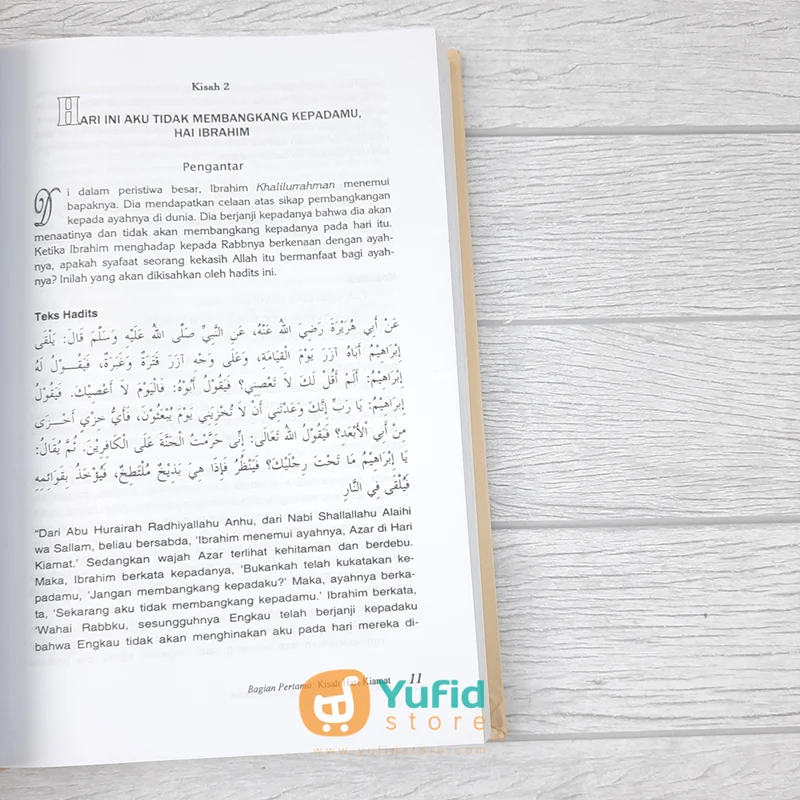 Kisah 2
HARI INI AKU TIDAK MEMBANGKANG KEPADAMU,
HAI IBRAHIM
Pengantar
Di dalam peristiwa besar, Ibrahim Khalilurrahman menemui
bapaknya. Dia mendapatkan celaan atas sikap pembangkangan
kepada ayahnya di dunia. Dia berjanji kepadanya bahwa dia akan
menaatinya dan tidak akan membangkang kepadanya pada hari itu.
Ketika Ibrahim menghadap kepada Rabbnya berkenaan dengan ayah-
nya, apakah syafaat seorang kekasih Allah itu bermanfaat bagi ayah-
nya? Inilah yang akan dikisahkan oleh hadits ini.
Teks Hadits
عَنْ أَبِي هُرَيْرَةَ رَضِيَ اللهُ عَنْهُ، عَنِ النَّبِيِّ صَلَّى اللهُ عَلَيْهِ وَسَلَّمَ قَالَ: يَلْقَى
إِبْرَاهِيْمُ أَبَاهُ آزَرَ يَوْمَ الْقِيَامَةِ، وَعَلَى وَجْهِ آزَرَ قَتَرَةٌ وَغَبَرَةٌ، فَيَقُـــوْلُ لَهُ
إِبْرَاهِيْمُ: أَلَمْ أَقُلْ لَكَ لَا تَعْصِنِي؟ فَيَقُوْلُ أَبُوْهُ: فَالْيَوْمَ لَا أَعْصِيْكَ. فَيَقُوْلُ
إِبْرَاهِيْمُ: يَا رَبِّ إِنَّكَ وَعَدْتَنِي أَنْ لَا تُخْزِيَنِي يَوْمَ يُبْعَثُوْنَ، فَأَيُّ خِزْيٍ أَخْــزَى
مِنْ أَبِي الْأَبْعَدِ؟ فَيَقُوْلُ اللهُ تَعَالَى: إِنِّى حَرَّمْتُ الْجَنَّةَ عَلَى الْكَافِرِيْنَ. ثُمَّ يُقَالُ:
يَا إِبْرَاهِيْمُ مَا تَحْتَ رِجْلَيْكَ؟ فَيَنْظُرُ فَإِذَا هِيَ بَذِيْخٌ مُلْتَطِخٌ، فَيُؤْخَذُ بِقَوَائِمِهِ
فَيُلْقَى فِي النَّارِ
“Dari Abu Hurairah Radhiyallahu Anhu, dari Nabi Shallallahu Alaihi
wa Sallam, beliau bersabda, ‘Ibrahim menemui ayahnya, Azar di Hari
Kiamat.’ Sedangkan wajah Azar terlihat kehitaman dan berdebu.
Maka, Ibrahim berkata kepadanya, ‘Bukankah telah kukatakan ke-
padamu, ‘Jangan membangkang kepadaku?’ Maka, ayahnya berka-
ta, ‘Sekarang aku tidak membangkang kepadamu.’ Ibrahim berkata,
‘Wahai Rabbku, sesungguhnya Engkau telah berjanji kepadaku
bahwa Engkau tidak akan menghinakan aku pada hari mereka di-
Bagian Pertama Kisah Hari Kiamat 11
Yufid
store
www.yufidstore.com